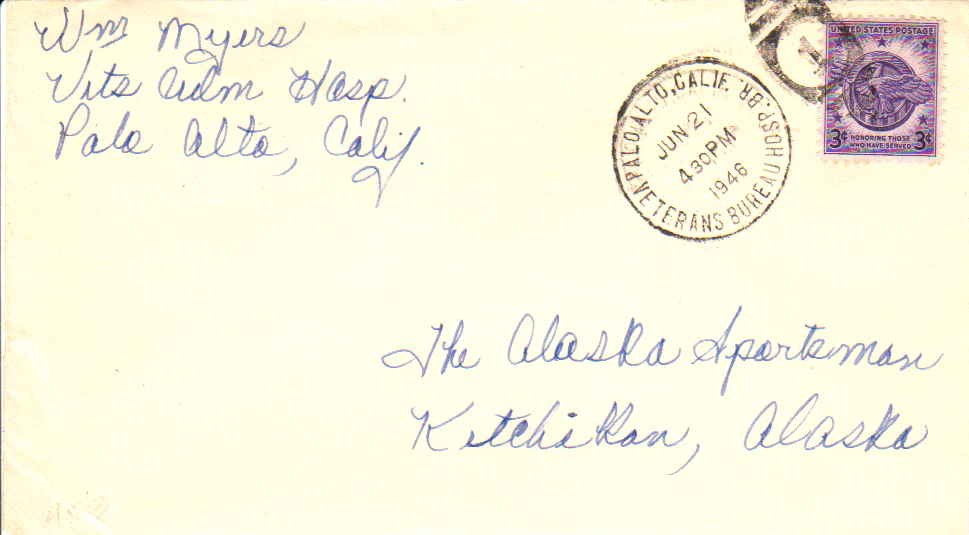 Wm Myers
Vets Adm Hosp.
Palo Alto, Calif.
PALO ALTO, CALIF.
VETERANS BUREAU HOSP. BR.
JUN 21
4 30 PM
1946
1
UNITED STATES POSTAGE
3¢ HONORING THOSE WHO HAVE SERVED 3¢
The Alaska Sportsman
Ketchikan, Alaska